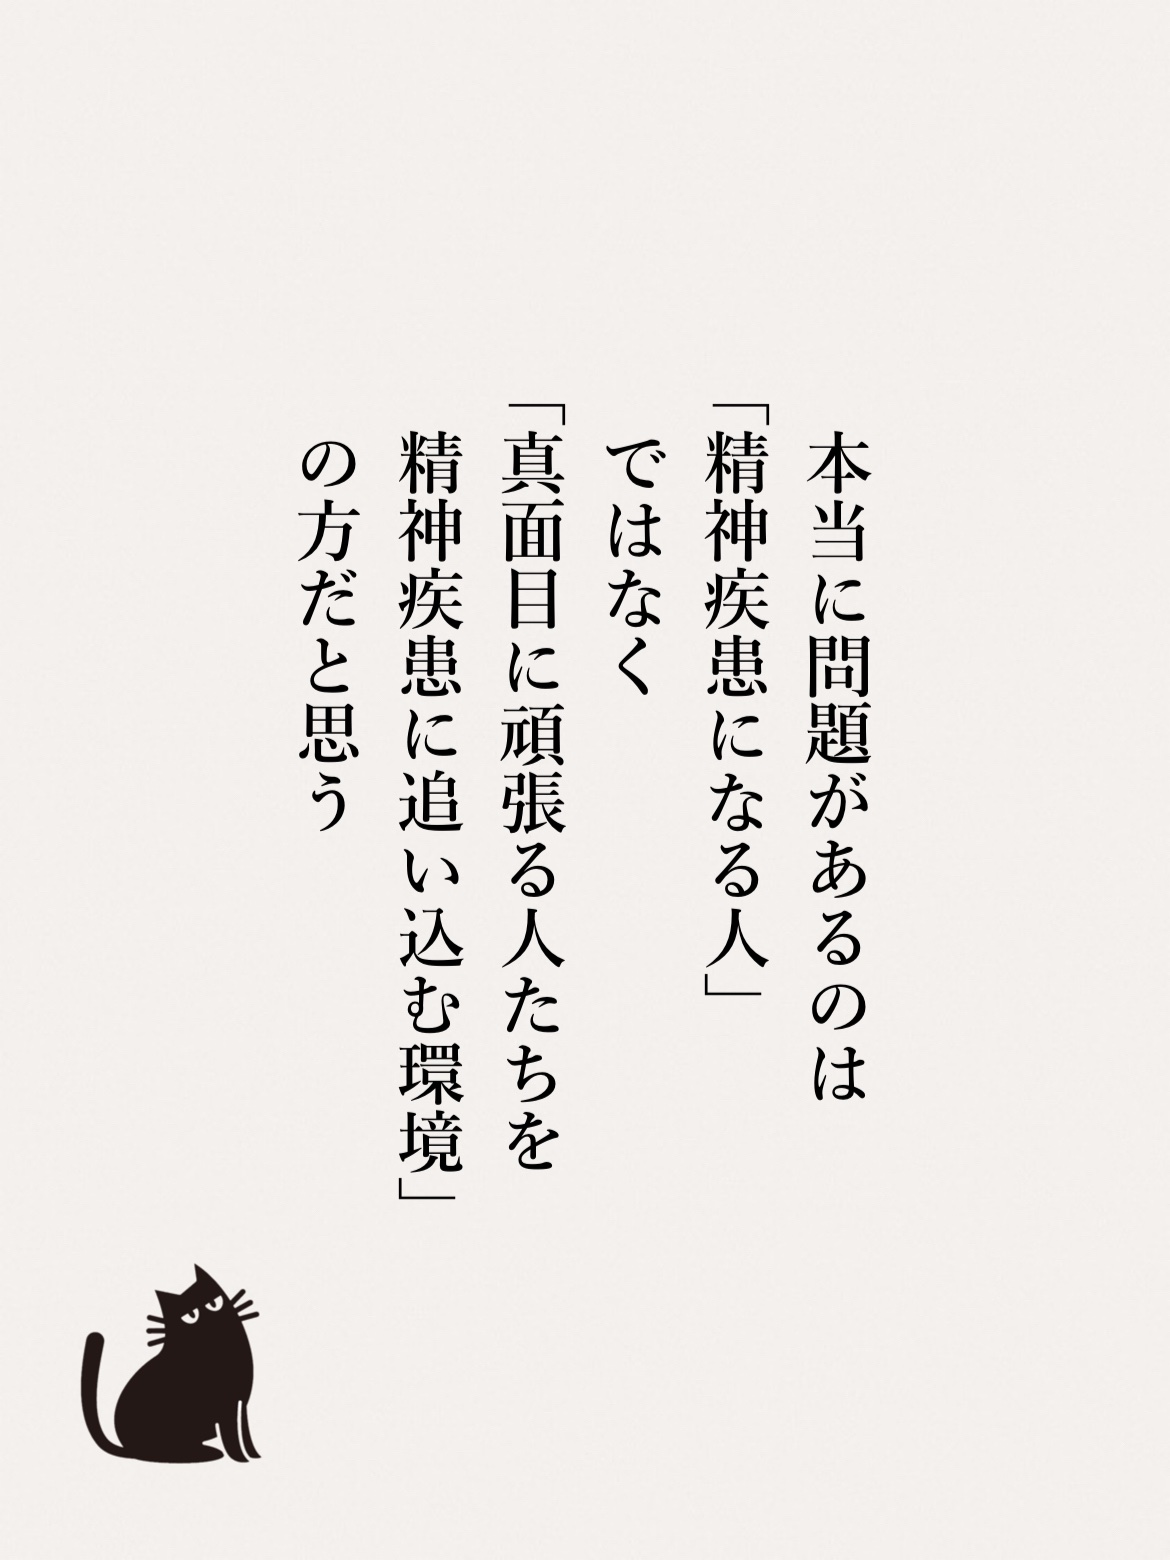 本当に問題があるのは
「精神疾患になる人」
ではなく
「真面目に頑張る人たちを
精神疾患に追い込む環境」
の方だと思う